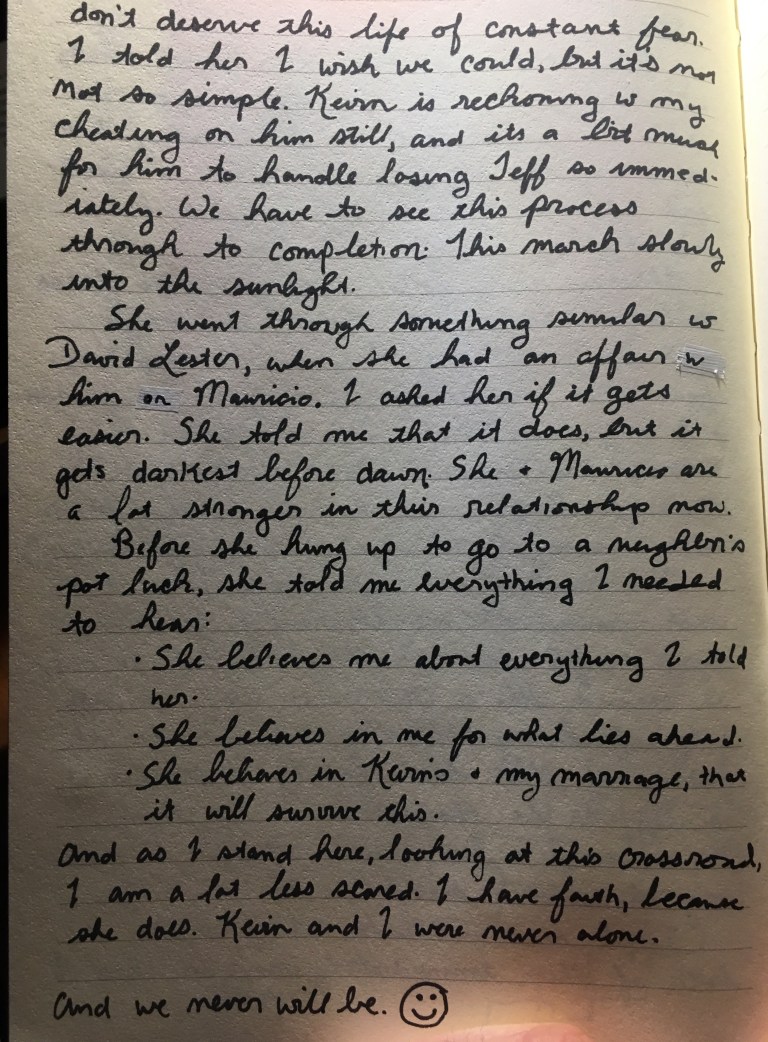 don't deserve this life of constant fear.
I told her I wish we could, but it's not
not so simple. Kevin is reckoning w my
cheating on him still, and its a bit much
for him to handle losing Jeff so immed-
iately. We have to see this process
through to completion. This march slowly
into the sunlight.
She went through something similar w
David Lester, when she had an affair w
him on Mauricio. I asked her if it gets
easier. She told me that it does, but it
gets darkest before dawn. She + Mauricio are
a lot stronger in their relationship now.
Before she hung up to go to a neighbor's
pot luck, she told me everything I needed
to hear:
· She believes me about everything I told
her.
· She believes in me for what lies ahead.
· She believes in Kevin's + my marriage, that
it will survive this.
And as I stand here, looking at this crossroad,
I am a lot less scared. I have faith, because
she does. Kevin and I were never alone.
And we never will be. ☺